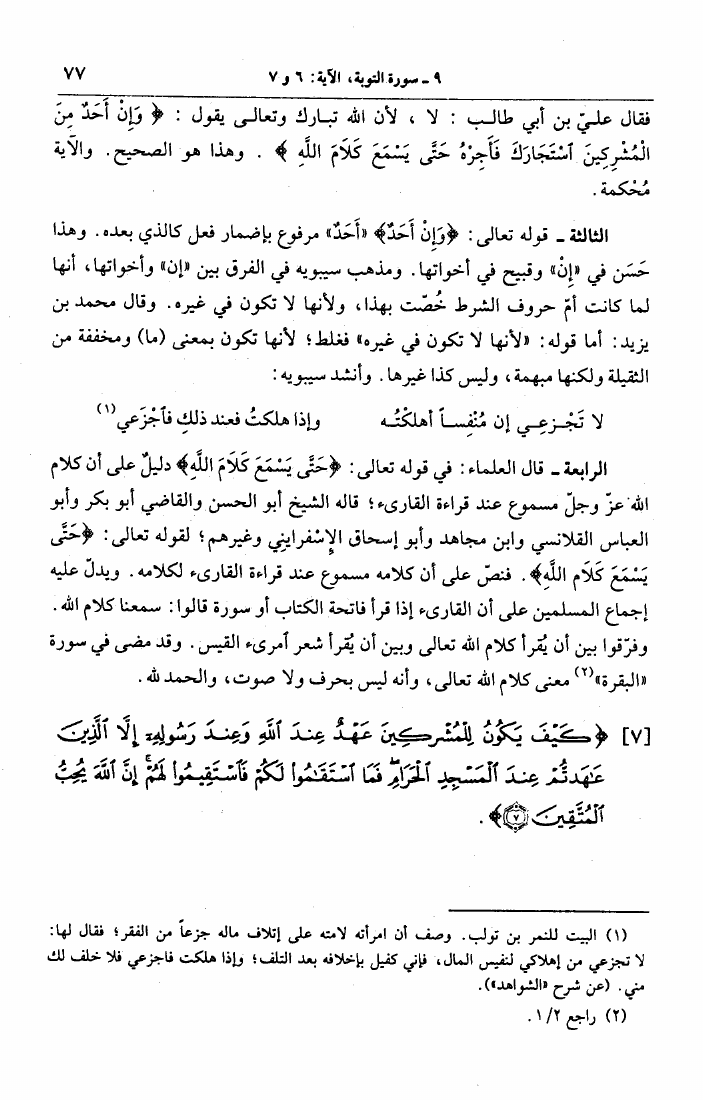 ٩ ـ سورة التوبة، الآية: ٦ و ٧
٧٧
فقال عليّ بن أبي طالب : لا ، لأن الله تبارك وتعالى يقول : ﴿ وَإِنْ أَحَدٌ مِنَ
الْمُشْرِكِينَ ٱسْتَجَارَكَ فَأَجِرْهُ حَتَّى يَسْمَعَ كَلَامَ اللَّهِ ﴾ . وهذا هو الصحيح. والآية
مُحْكمة.
الثالثة ـ قوله تعالى: ﴿وَإِنْ أَحَدٌ﴾ «أَحَدٌ» مرفوع بإضمار فعل كالذي بعده. وهذا
حَسَن في «إِنْ» وقبيح في أخواتها. ومذهب سيبويه في الفرق بين «إن» وأخواتها، أنها
لما كانت أمّ حروف الشرط خُصّت بهذا، ولأنها لا تكون في غيره. وقال محمد بن
يزيد: أما قوله: «لأنها لا تكون في غيره» فغلط؛ لأنها تكون بمعنى (ما) ومخففة من
الثقيلة ولكنها مبهمة، وليس كذا غيرها. وأنشد سيبويه:
لا تَجْـزعِـي إن مُنْفِسـاً أهلكتُـه وإذا هلكتُ فعند ذلكِ فٱجْزَعي(١)
الرابعة ـ قال العلماء: في قوله تعالى: ﴿حَتَّى يَسْمَعَ كَلَامَ اللَّهِ﴾ دليلٌ على أن كلام
الله عزّ وجلّ مسموع عند قراءة القارىء؛ قاله الشيخ أبو الحسن والقاضي أبو بكر وأبو
العباس القلانسي وابن مجاهد وأبو إسحاق الإسْفراينِي وغيرهم؛ لقوله تعالى: ﴿حَتَّى
يَسْمَعَ كَلَام اللَّهِ﴾. فنصّ على أن كلامه مسموع عند قراءة القارىء لكلامه. ويدلّ عليه
إجماع المسلمين على أن القارىء إذا قرأ فاتحة الكتاب أو سورة قالوا: سمعنا كلام الله.
وفرّقوا بين أن يُقرأ كلام الله تعالى وبين أن يُقرأ شعر ٱمرىء القيس. وقد مضى في سورة
«البقرة»(٢) معنى كلام الله تعالى، وأنه ليس بحرف ولا صوت، والحمد لله.
[٧] ﴿كَيْفَ يَكُونُ لِلْمُشْرِكِينَ عَهْدٌ عِندَ ٱللَّهِ وَعِندَ رَسُولِهِۦٓ إِلَّا ٱلَّذِينَ
عَٰهَدتُّمْ عِندَ ٱلْمَسْجِدِ ٱلْحَرَامِۖ فَمَا ٱسْتَقَٰمُوا۟ لَكُمْ فَٱسْتَقِيمُوا۟ لَهُمْۚ إِنَّ ٱللَّهَ يُحِبُّ
ٱلْمُتَّقِينَ ٧﴾.
(١) البيت للنمر بن تولب. وصف أن امرأته لامته على إتلاف ماله جزعاً من الفقر؛ فقال لها:
لا تجزعي من إهلاكي لنفيس المال، فإني كفيل بإخلافه بعد التلف؛ وإذا هلكت فاجزعي فلا خلف لك
مني. (عن شرح «الشواهد»).
(٢) راجع ١/٢.